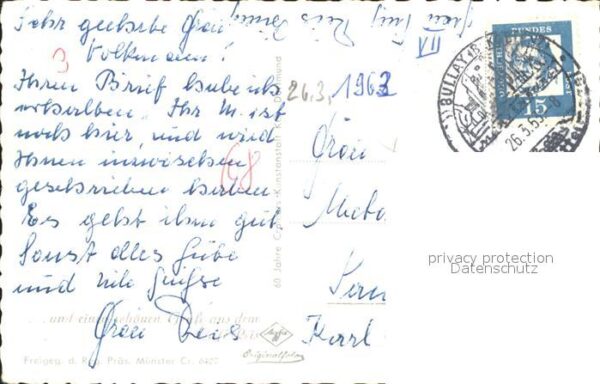 Sehr geehrte Frau
Volkmann!
Ihren Brief habe ich
erhalten. Ihr M. ist
noch hier, und wird
Ihnen inzwischen
geschrieben haben
Es geht ihm gut
Sonst alles Gute
und viele Grüße
Frau Reis
3
68
26.3. 1963
VII
BULLAY
26.3.63-8
DEUTSCHE BUNDESPOST
15
Frau
Karl
60 Jahre Cramers Kunstanstalt KG., Dortmund
... und einen schönen Gruß aus dem
Agfa
Originalfoto
Freigeg. d. Reg. Präs. Münster Cr. 6422
privacy protection
Datenschutz